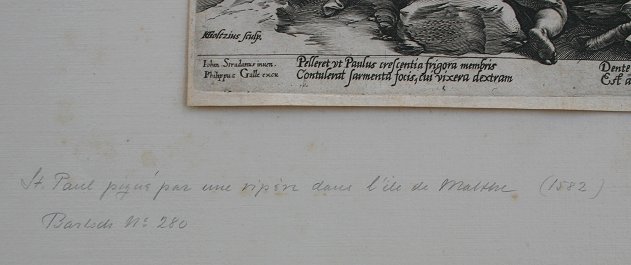 HGoltzius sculp.
Iohan. Stradanus inuen.
Philippus Galle excu.
Pelleret vt Paulus crescentia frigora membris
Contulerat sarmenta focis, cui vixera dextram
Dente
Est a
St. Paul piqué par une vipère dans l'île de Malthe (1582)
Bartsch No 280